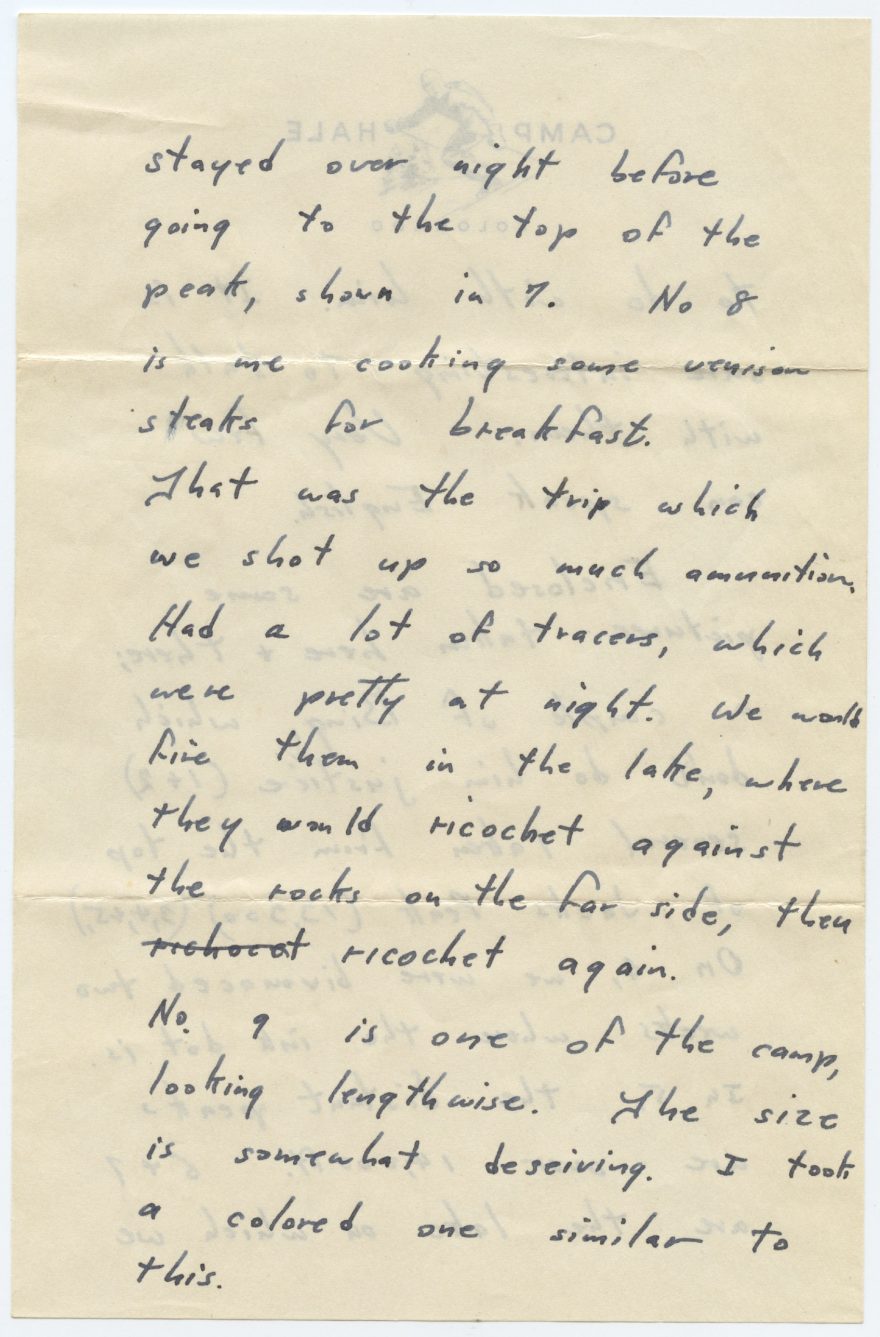 stayed over night before
going to the top of the
peak, shown in 7. No 8
is me cooking some venison
steaks for breakfast.
That was the trip which
we shot up so much ammunition.
Had a lot of tracers, which
were pretty at night. We would
fire them in the lake, where
they would ricochet against
the rocks on the far side, then
richocet ricochet again.
No. 9 is one of the camp,
looking lengthwise. The size
is somewhat deseiving. I took
a colored one similar to
this.